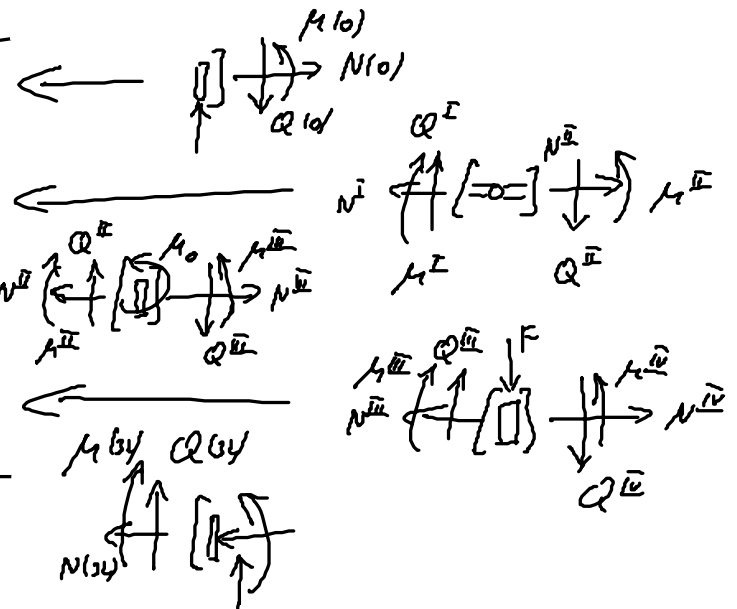 M(0)
N(0)
Q(0)
Q^I
N^II
N^I
M^II
M^I
Q^II
Q^II
M_0
M^III
N^II
N^III
M^II
Q^III
M^III
Q^III
F
M^IV
N^III
N^IV
Q^IV
M(3L)
Q(3L)
N(3L)